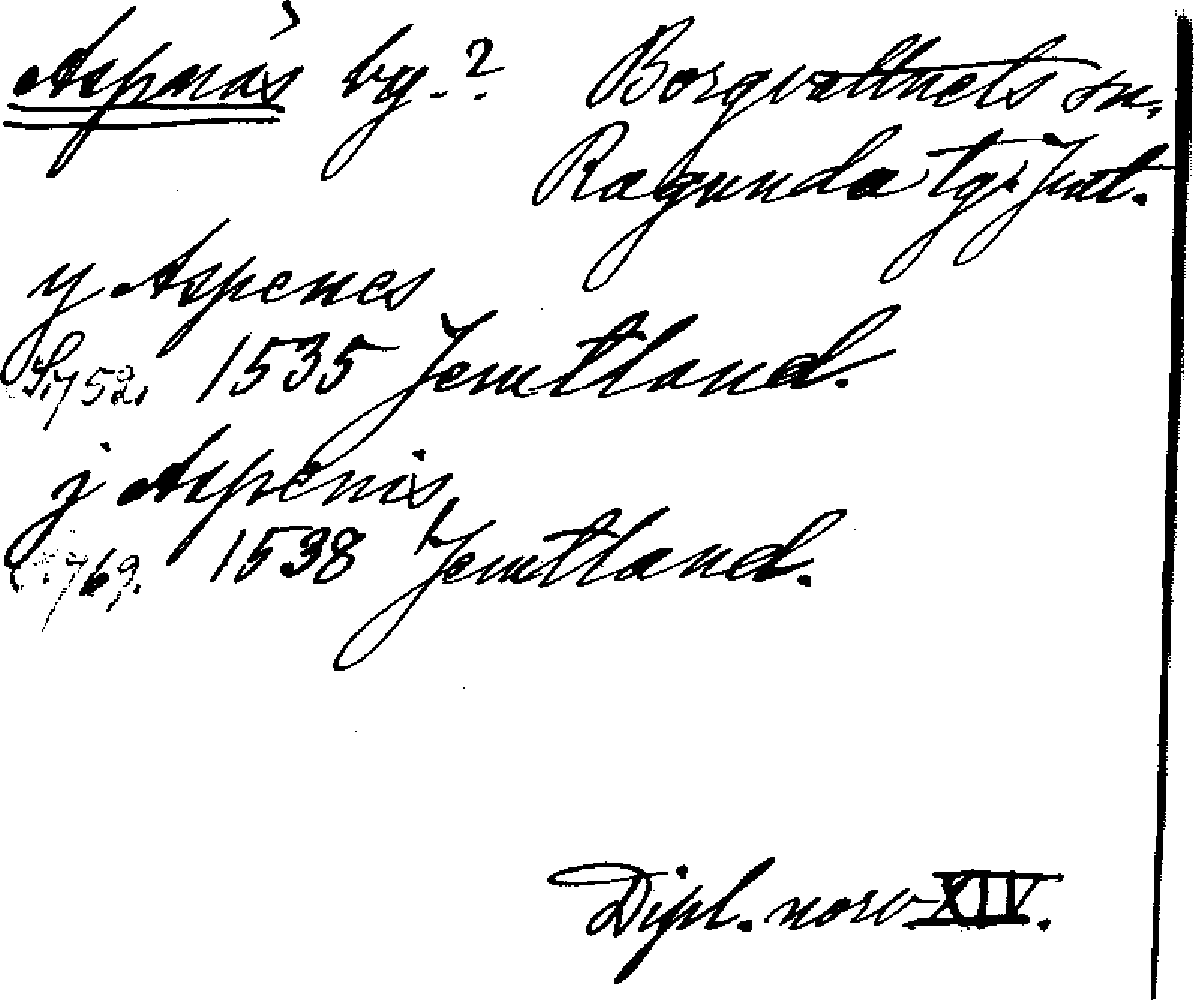 Aspnäs by.? Borgvattnets sn.
Ragunda tg. Jmt.
y Aspenes
S. 752. 1535 Jemtland.
j Aspenis
769. 1538 Jemtland.
Dipl. norv. XIV.